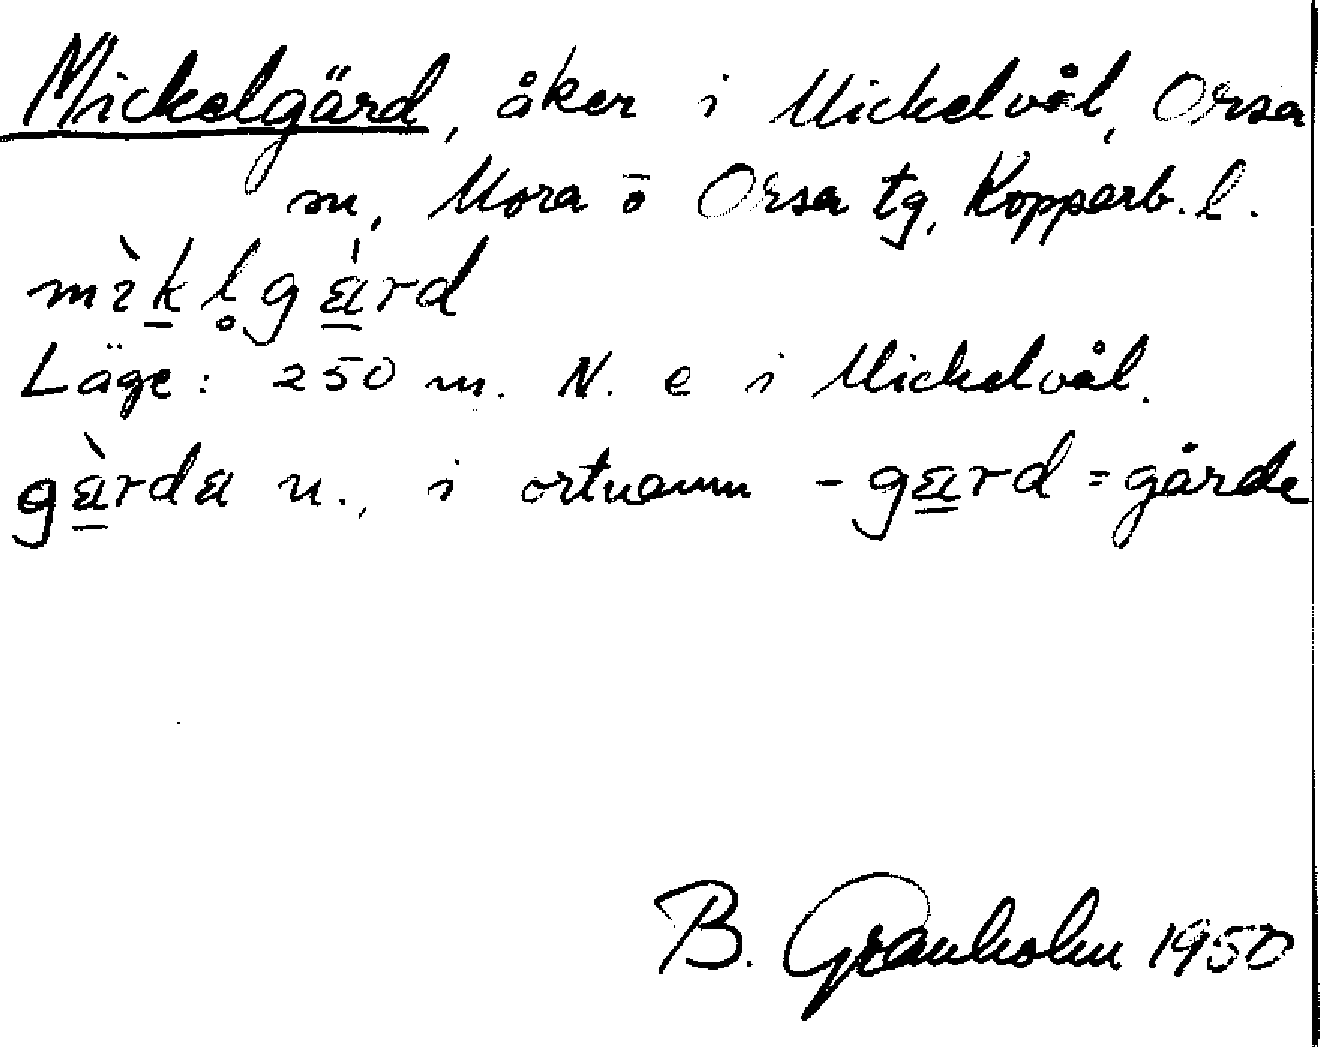 Mickelgärd, åker i Mickelvål, Orsa
sn, Mora o Orsa tg, Kopparb. l.
mìk̠l̥gæ̠̀rd
Läge: 250 m. N. e i Mickelvål.
gæ̠̀rdæ n., i ortnamn -gæ̠rd = gärde
B. Granholm 1950